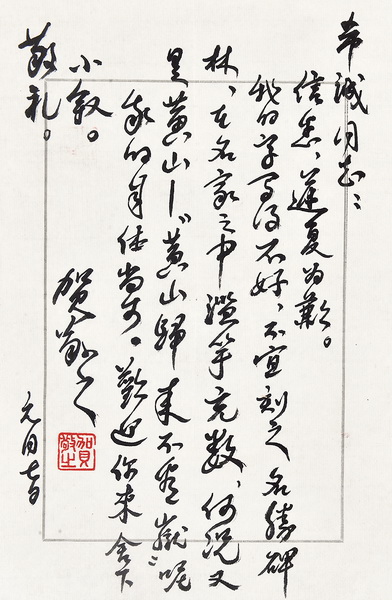 希诚同志：
信悉，遲复为歉。
我的字写得不好，不宜刻之名勝碑
林，在名家之中濫竽充数，何况又
是黄山－“黄山歸来不看嶽”呢
我的身体尚可。歡迎你来舍下
小叙。
敬礼。
贺敬之
元月七日
賀敬之